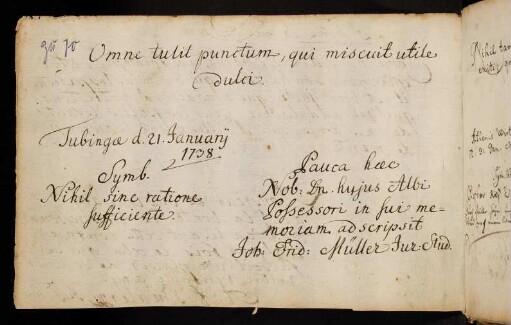 Omne tulit punctum, qui miscuit utile
dulci.
Tubingæ d. 21. Januarij
1738.
Symb.
Nihil sine ratione
sufficiente.
Pauca hæc
Nob: Dn. hujus Albi
Possessori in sui me-
moriam adscripsit
Joh: Frid: Müller Jur: Stud.
Nihil